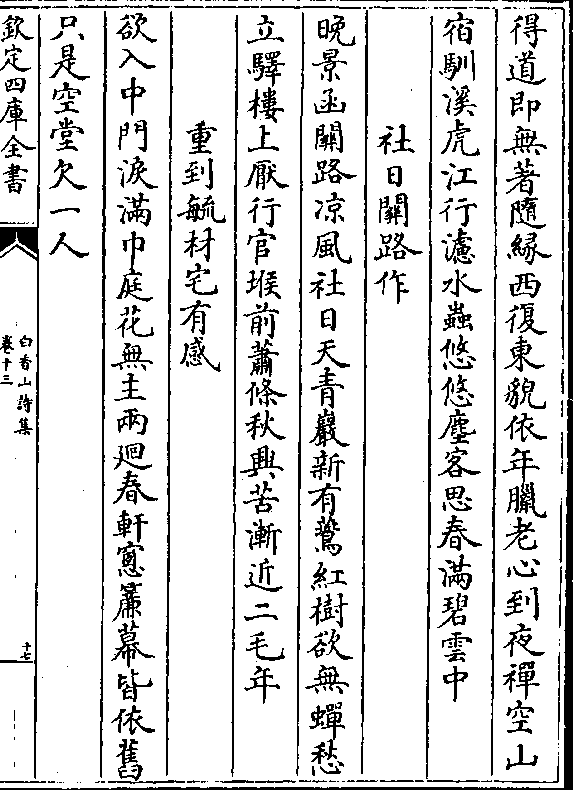 得道即無著隨緣西復東貌依年臘老心到夜禪空山
宿馴溪虎江行濾水蟲悠悠塵客思春滿碧雲中
社日關路作
晚景函關路凉風社日天青巖新有鷰紅樹欲無蟬愁
立驛樓上厭行官堠前蕭條秋興苦漸近二毛年
重到毓材宅有感
欲入中門淚滿巾庭花無主兩廻春軒窻簾幕皆依舊
只是空堂欠一人
欽定四庫全書
白香山詩集
卷十三
十七